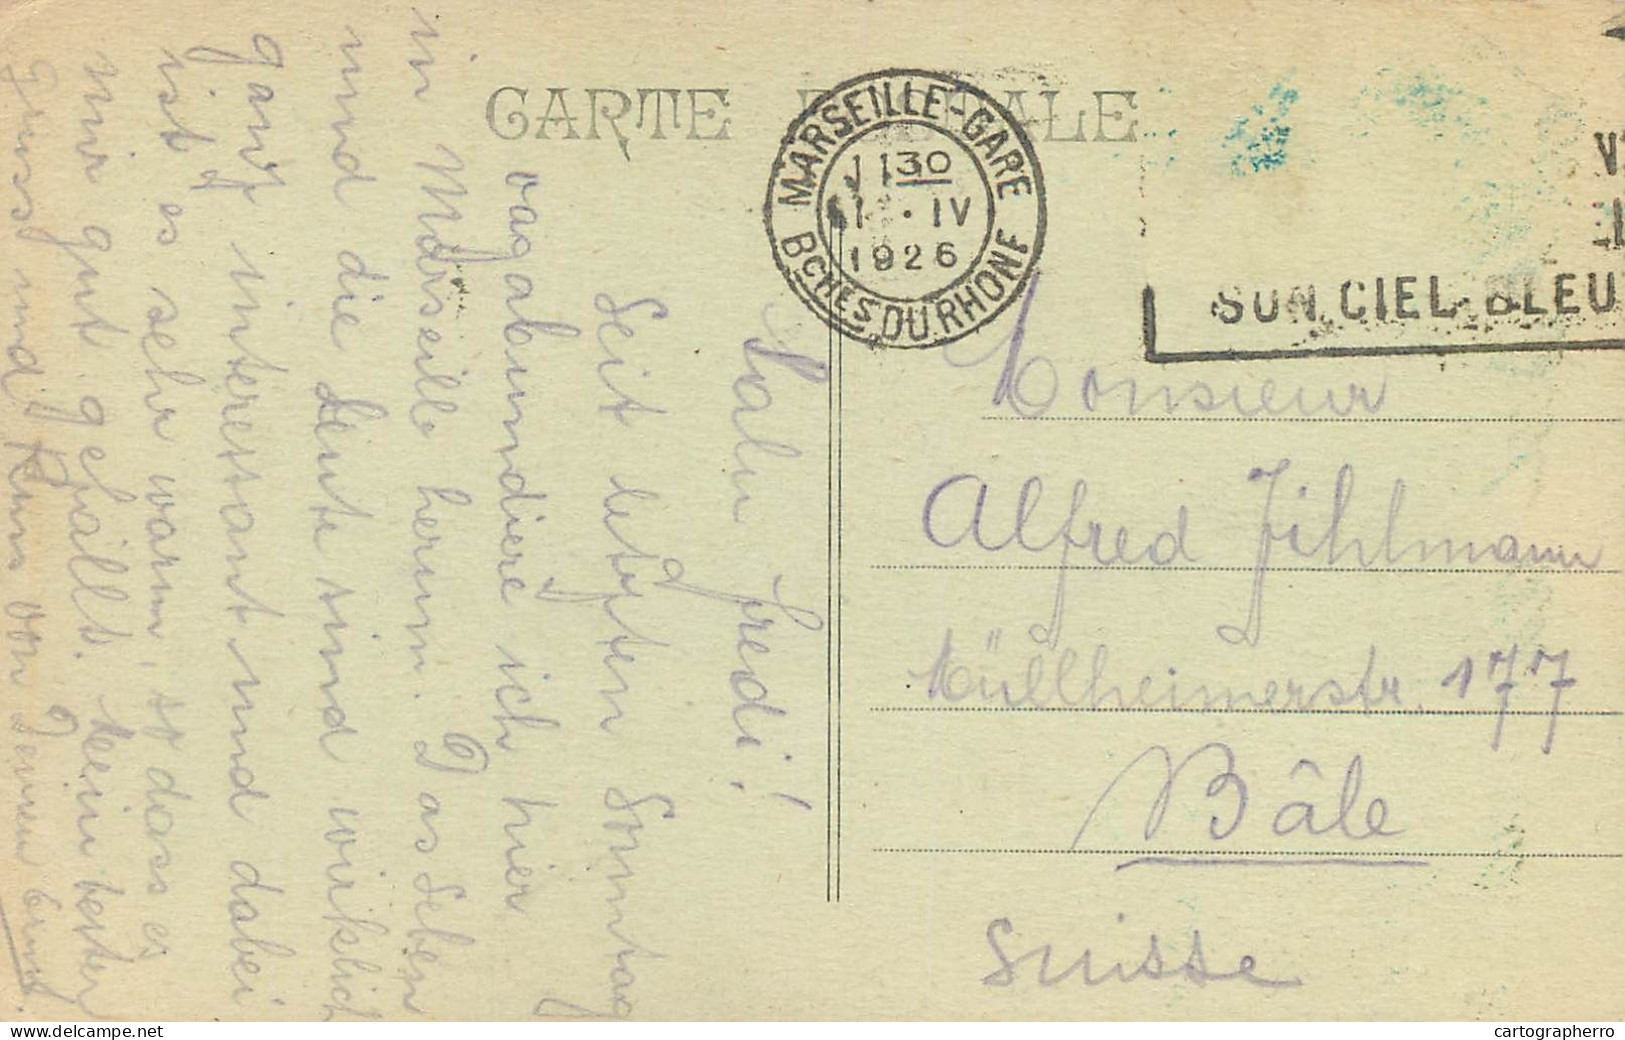 CARTE POSTALE
MARSEILLE-GARE
1130
1 · IV
1926
Bches DU RHONE
SON CIEL BLEU
Salu Fredi!
Seit letzten Sonntag
vagabundiere ich hier
in Marseille herum. Das Leben
und die Leute sind wirklich
ganz interessant und dabei
ist es sehr warm, so dass es
mir gut gefällt. Mein bester
Gruss und Kuss von
Monsieur
Alfred Jihlmann
Müllheimerstr. 177
Bâle
Suisse
www.delcampe.net
cartographerro